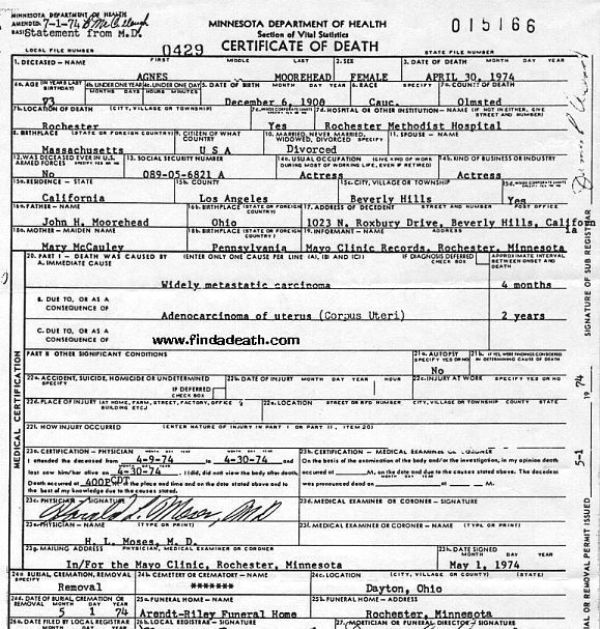 MINNESOTA DEPARTMENT OF HEALTH
AMENDED 7-1-74
BASIS Statement from M.D.
MINNESOTA DEPARTMENT OF HEALTH
Section of Vital Statistics
CERTIFICATE OF DEATH
015166
LOCAL FILE NUMBER 0429
STATE FILE NUMBER
1. DECEASED – NAME FIRST MIDDLE LAST 2. SEX 3. DATE OF DEATH MONTH DAY YEAR
AGNES MOOREHEAD FEMALE APRIL 30, 1974
4A. AGE (IN YEARS LAST BIRTHDAY) 4B. UNDER ONE YEAR 4C. UNDER ONE DAY 5. DATE OF BIRTH MONTH DAY YEAR 6. RACE SPECIFY 7A. COUNTY OF DEATH
MONTHS DAYS HOURS MINUTES
73 December 6, 1900 Cauc. Olmsted
7B. LOCATION OF DEATH (CITY, VILLAGE OR TOWNSHIP) 7D. HOSPITAL OR OTHER INSTITUTION – NAME (IF NOT IN EITHER, GIVE STREET AND NUMBER)
Rochester Yes Rochester Methodist Hospital
8. BIRTHPLACE (STATE OR FOREIGN COUNTRY) 9. CITIZEN OF WHAT COUNTRY 10. MARRIED, NEVER MARRIED, WIDOWED, DIVORCED SPECIFY 11. SPOUSE – NAME
Massachusetts U S A Divorced
12. WAS DECEASED EVER IN U.S. ARMED FORCES 13. SOCIAL SECURITY NUMBER 14A. USUAL OCCUPATION (GIVE KIND OF WORK DURING MOST OF WORKING LIFE, EVEN IF RETIRED) 14B. KIND OF BUSINESS OR INDUSTRY
No 089-05-6821 A Actress Actress
15A. RESIDENCE – STATE 15B. COUNTY 15C. CITY, VILLAGE OR TOWNSHIP
California Los Angeles Beverly Hills Yes
16A. FATHER – NAME 16B. BIRTHPLACE (STATE OR FOREIGN COUNTRY) 17. ADDRESS OF DECEDENT STREET AND NUMBER POST OFFICE
John H. Moorehead Ohio 1023 N. Roxbury Drive, Beverly Hills, Californ
ia
18A. MOTHER – MAIDEN NAME 18B. BIRTHPLACE (STATE OR FOREIGN COUNTRY) 19. INFORMANT – NAME ADDRESS
Mary McCauley Pennsylvania Mayo Clinic Records, Rochester, Minnesota
20. PART I – DEATH WAS CAUSED BY (ENTER ONLY ONE CAUSE PER LINE (A), (B) AND (C)) IF DIAGNOSIS DEFERRED CHECK BOX APPROXIMATE INTERVAL BETWEEN ONSET AND DEATH
A. IMMEDIATE CAUSE
Widely metastatic carcinoma 4 months
B. DUE TO, OR AS A CONSEQUENCE OF
Adenocarcinoma of uterus (Corpus Uteri) 2 years
C. DUE TO, OR AS A CONSEQUENCE OF
www.findadeath.com
PART II OTHER SIGNIFICANT CONDITIONS 21A. AUTOPSY SPECIFY YES OR NO 21B. IF YES, WERE FINDINGS CONSIDERED IN DETERMINING CAUSE OF DEATH
No
22A. ACCIDENT, SUICIDE, HOMICIDE OR UNDETERMINED SPECIFY IF DEFERRED CHECK BOX 22B. DATE OF INJURY MONTH DAY YEAR HOUR 22C. INJURY AT WORK SPECIFY YES OR NO
22D. PLACE OF INJURY (AT HOME, FARM, STREET, FACTORY, OFFICE BUILDING ETC.) 22E. LOCATION STREET OR RFD NUMBER CITY, VILLAGE OR TOWNSHIP COUNTY STATE
22F. HOW INJURY OCCURRED (ENTER NATURE OF INJURY IN PART I OR PART II, ITEM 20)
MEDICAL CERTIFICATION
23A. CERTIFICATION – PHYSICIAN
I attended the deceased from 4-9-74 to 4-30-74 and
last saw him/her alive on 4-30-74. I (did, did not) view the body after death.
Death occurred at 400P CDT at the place and time and on the date stated above and to
the best of my knowledge due to the causes stated.
23B. CERTIFICATION – MEDICAL EXAMINER OR CORONER
On the basis of the examination of the body and/or the investigation, in my opinion death
occurred at M. on the date and due to the causes stated above. The decedent
was pronounced dead on at M.
23C. PHYSICIAN – SIGNATURE 23D. MEDICAL EXAMINER OR CORONER – SIGNATURE
Harold L. Moses, MD
23E. PHYSICIAN – NAME (TYPE OR PRINT) 23F. MEDICAL EXAMINER OR CORONER – NAME (TYPE OR PRINT)
H. L. Moses, M. D.
23G. MAILING ADDRESS PHYSICIAN, MEDICAL EXAMINER OR CORONER 23H. DATE SIGNED MONTH DAY YEAR
In/For the Mayo Clinic, Rochester, Minnesota May 1, 1974
24A. BURIAL, CREMATION, REMOVAL SPECIFY 24B. CEMETERY OR CREMATORY – NAME 24C. LOCATION (CITY, VILLAGE OR COUNTY) (STATE)
Removal ******* Dayton, Ohio
24D. DATE OF BURIAL, CREMATION OR REMOVAL MONTH DAY YEAR 25A. FUNERAL HOME – NAME 25B. FUNERAL HOME – ADDRESS
5 1 74 Arendt-Riley Funeral Home Rochester, Minnesota
26A. DATE FILED BY LOCAL REGISTRAR 26B. LOCAL REGISTRAR – SIGNATURE 27. MORTICIAN OR FUNERAL DIRECTOR – SIGNATURE
SIGNATURE OF SUB REGISTRAR
5-1 1974
BURIAL OR REMOVAL PERMIT ISSUED